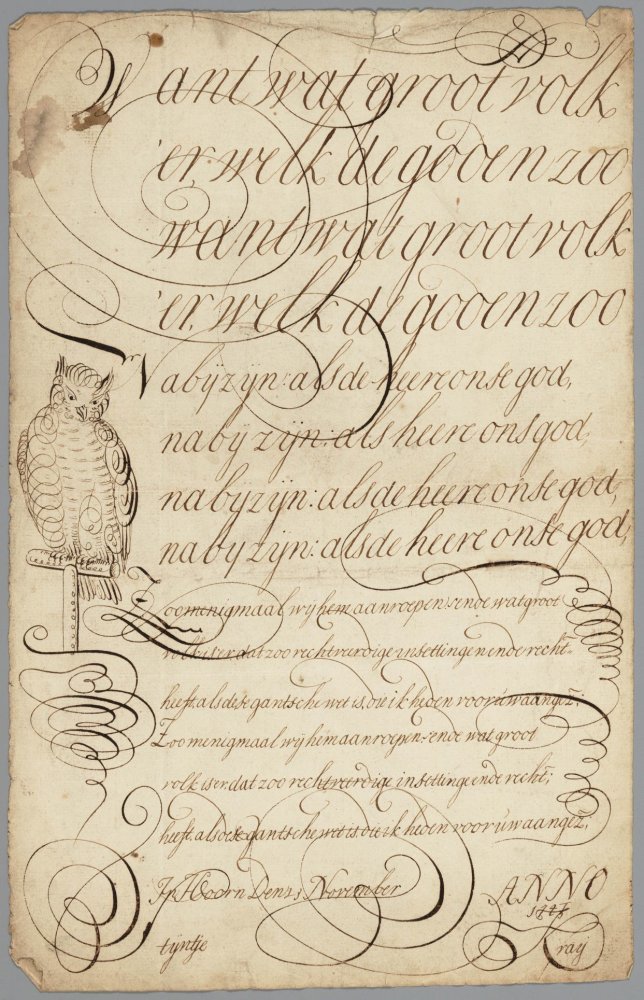 Want wat groot volk
'er, welk de gooen zoo
want wat groot volk
'er, welk de gooen zoo
Nabÿ zÿn: als de heere onse god,
nabÿ zÿn: als heere ons god,
nabÿ zÿn: als de heere onse god,
nabÿ zÿn: als de heere onse god,
Zoo menigmaal wÿ hem aanroepen: ende wat groot
volk iser, dat zoo rechtveerdige insettingen ende recht=
heeft, als dese gantsche wet is, die ik heden voor uw aangez:
Zoo menigmaal wÿ hem aanroepen: ende wat groot
volk iser, dat zoo rechtveerdige insettinge ende recht;
heeft, als dese gantsche wet is die ik heden voor uw aangez,
In Hoorn Den November
ANNO
tÿntje
Kray